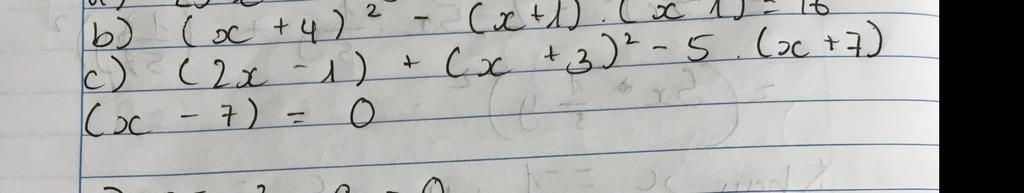 b) (x + 4)² - (x+1).(x 1) = 16
c) (2x - 1) + (x + 3)² - 5 . (x + 7)
(x - 7) = 0